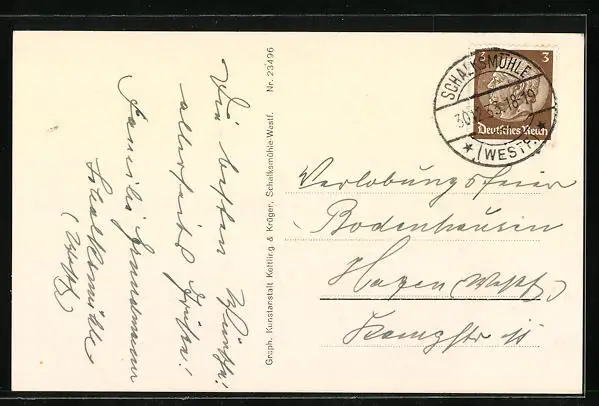 Die besten Wünsche!
allerseits Grüße!
Familie Grundmann
Schalksmühle
(Westf)
Graph. Kunstanstalt Kettling & Krüger, Schalksmühle-Westf. Nr. 23496
3 3
SCHALKSMÜHLE
18-19
(WESTF.)
Deutsches Reich
Verlobungsfeier
Bodenhausen
Hagen (Westf)
Kampfstr